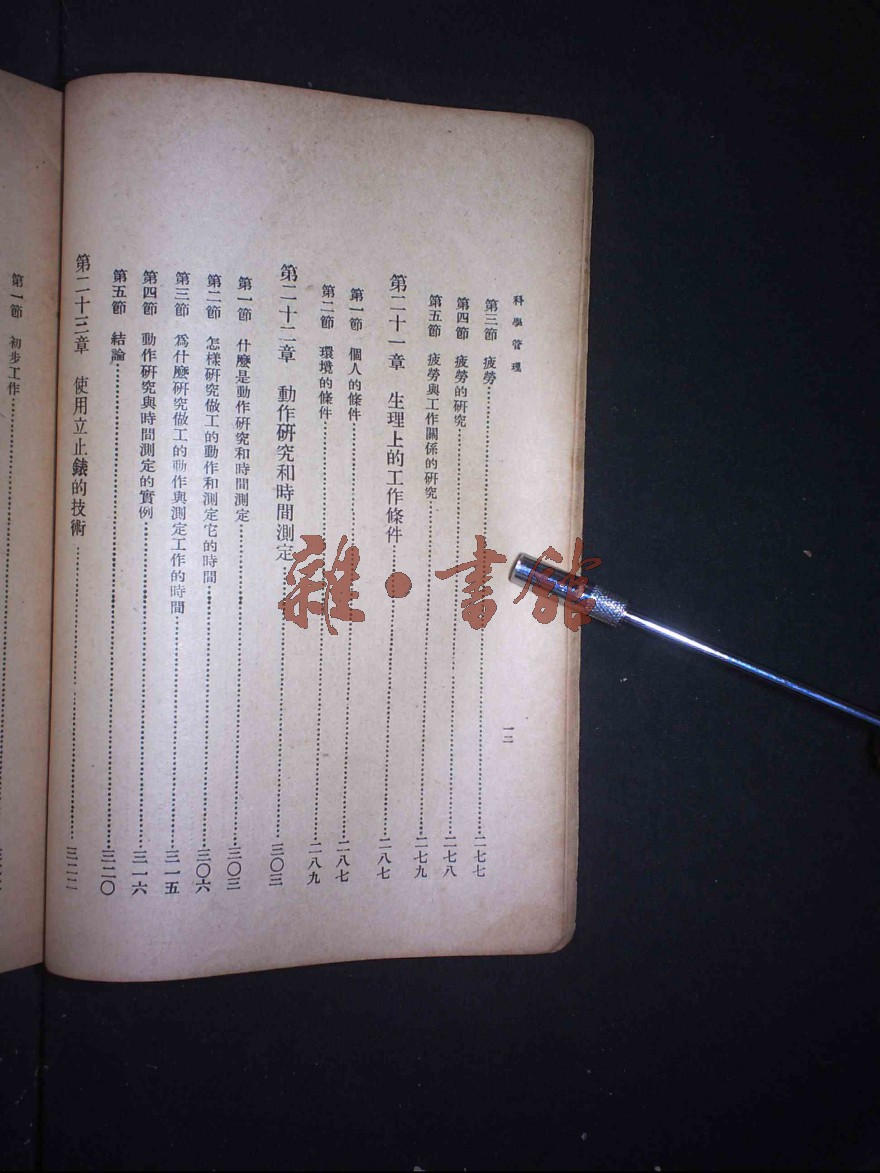 科學管理
一二
第三節 疲勞………二七七
第四節 疲勞的研究………二七八
第五節 疲勞與工作關係的研究………二七九
第二十一章 生理上的工作條件………二八七
第一節 個人的條件………二八七
第二節 環境的條件………二八九
第二十二章 動作研究和時間測定………三〇三
第一節 什麼是動作研究和時間測定………三〇三
第二節 怎樣研究做工的動作和測定它的時間………三〇六
第三節 爲什麼研究做工的動作與測定工作的時間………三一五
第四節 動作研究與時間測定的實例………三一六
第五節 結論………三二〇
第二十三章 使用立止錶的技術………三二二
第一節 初步工作………
雜·書館